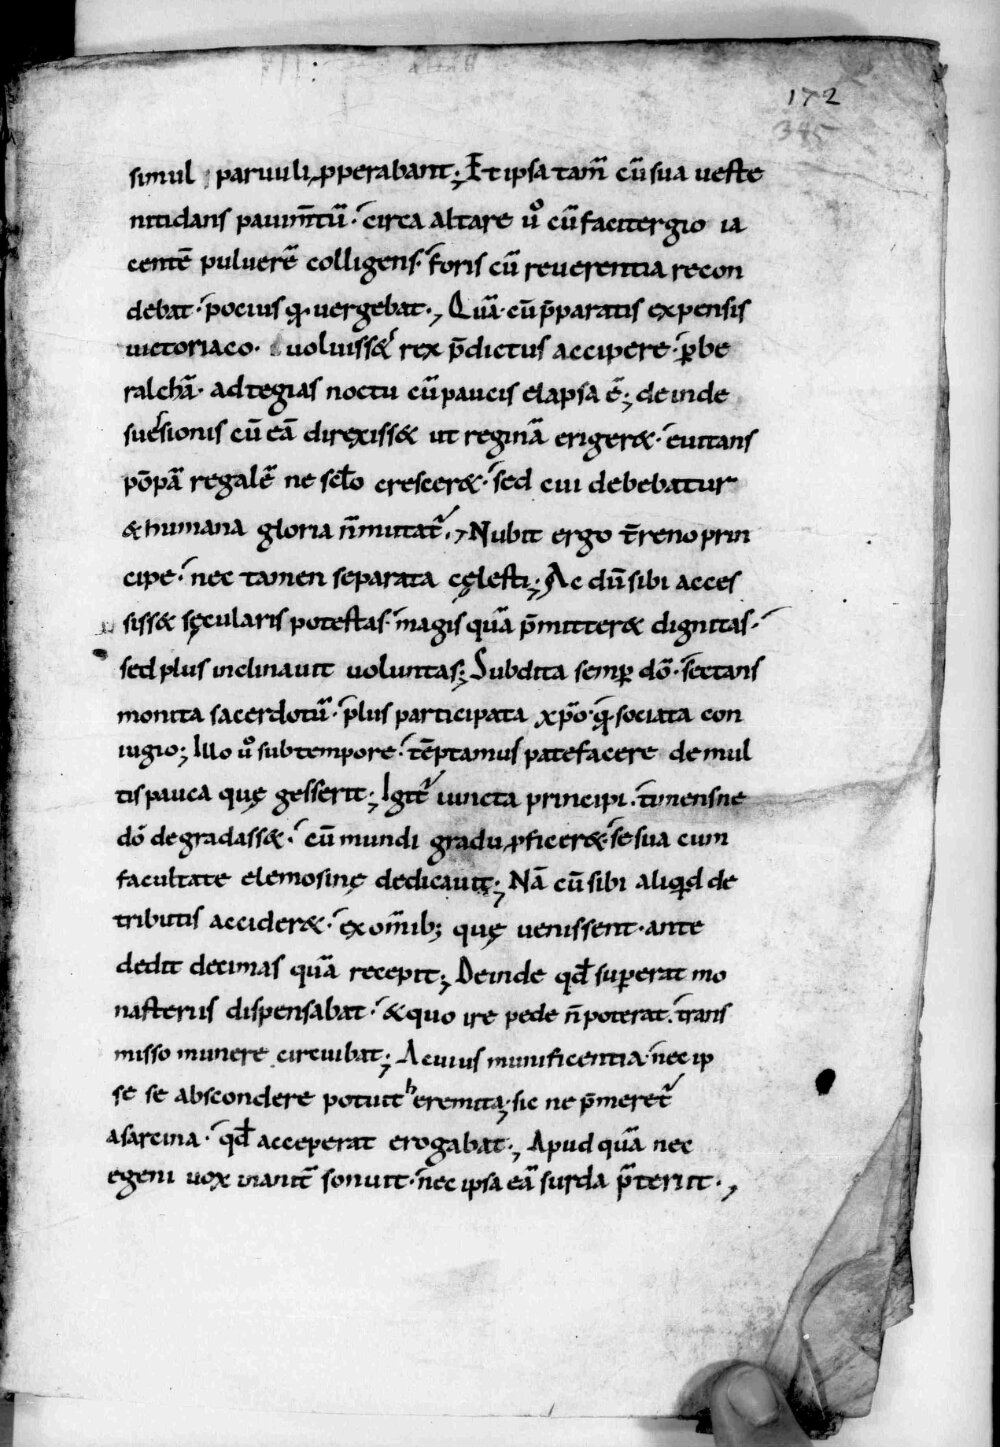 172
345
simul paruuli ꝓperabant; Et ipsa tam̄ cū sua ueste
nitidans pauim̄tū· circa altare ů cū facitergio ia
centē puluerē colligens· foris cū reuerentia recon
debat· pocius q̄· uergebat·, Quā· cū p̄paratis expensis
uictoriaco· uoluiss& rex p̄dictus accipere· ꝑ be
ralchā· ad tegias noctu cū paucis elapsa ē; deinde
suersionis cū eā direxiss& ut reginā eriger&· euitans
pōpā regalē ne sclo crescer&· sed cui debebatur
& humana gloria n̄ mutat̄·, Nubit ergo t̄reno prin
cipe· nec tamen separata cęlesti; Ac dū sibi acces
siss& sęcularis potestas· magis quā p̄mitter& dignitas·
sed plus inclinauit uoluntas; Subdita semꝑ dō· sectans
monita sacerdotū· plus participata xp̄o· q̄ sociata con
iugio; Illo ů sub tempore· tēptamus patefacere de mul
tis pauca quę gesserit; Igit̄ iuncta principi· timens ne
dō degradass&· cū mundi gradu ꝓficer&· se sua cum
facultate elemosinę dedicauit; Nā cū sibi aliqd̄ de
tributis accider&· ex om̄ib; quę uenissent· ante
dedit decimas quā recepit; Deinde qd̄ superat mo
nasteriis dispensabat· & quo ire pede n̄ poterat· trans
misso munere circuibat; A cuius munificentia· nec ip
se se abscondere potuit heremita; sic ne p̄meret̄
a sarcina· qd̄ acceperat erogabat·, Apud quā nec
egeni uox inanit̄ sonuit· nec ipsa eā surda p̄teriit·,